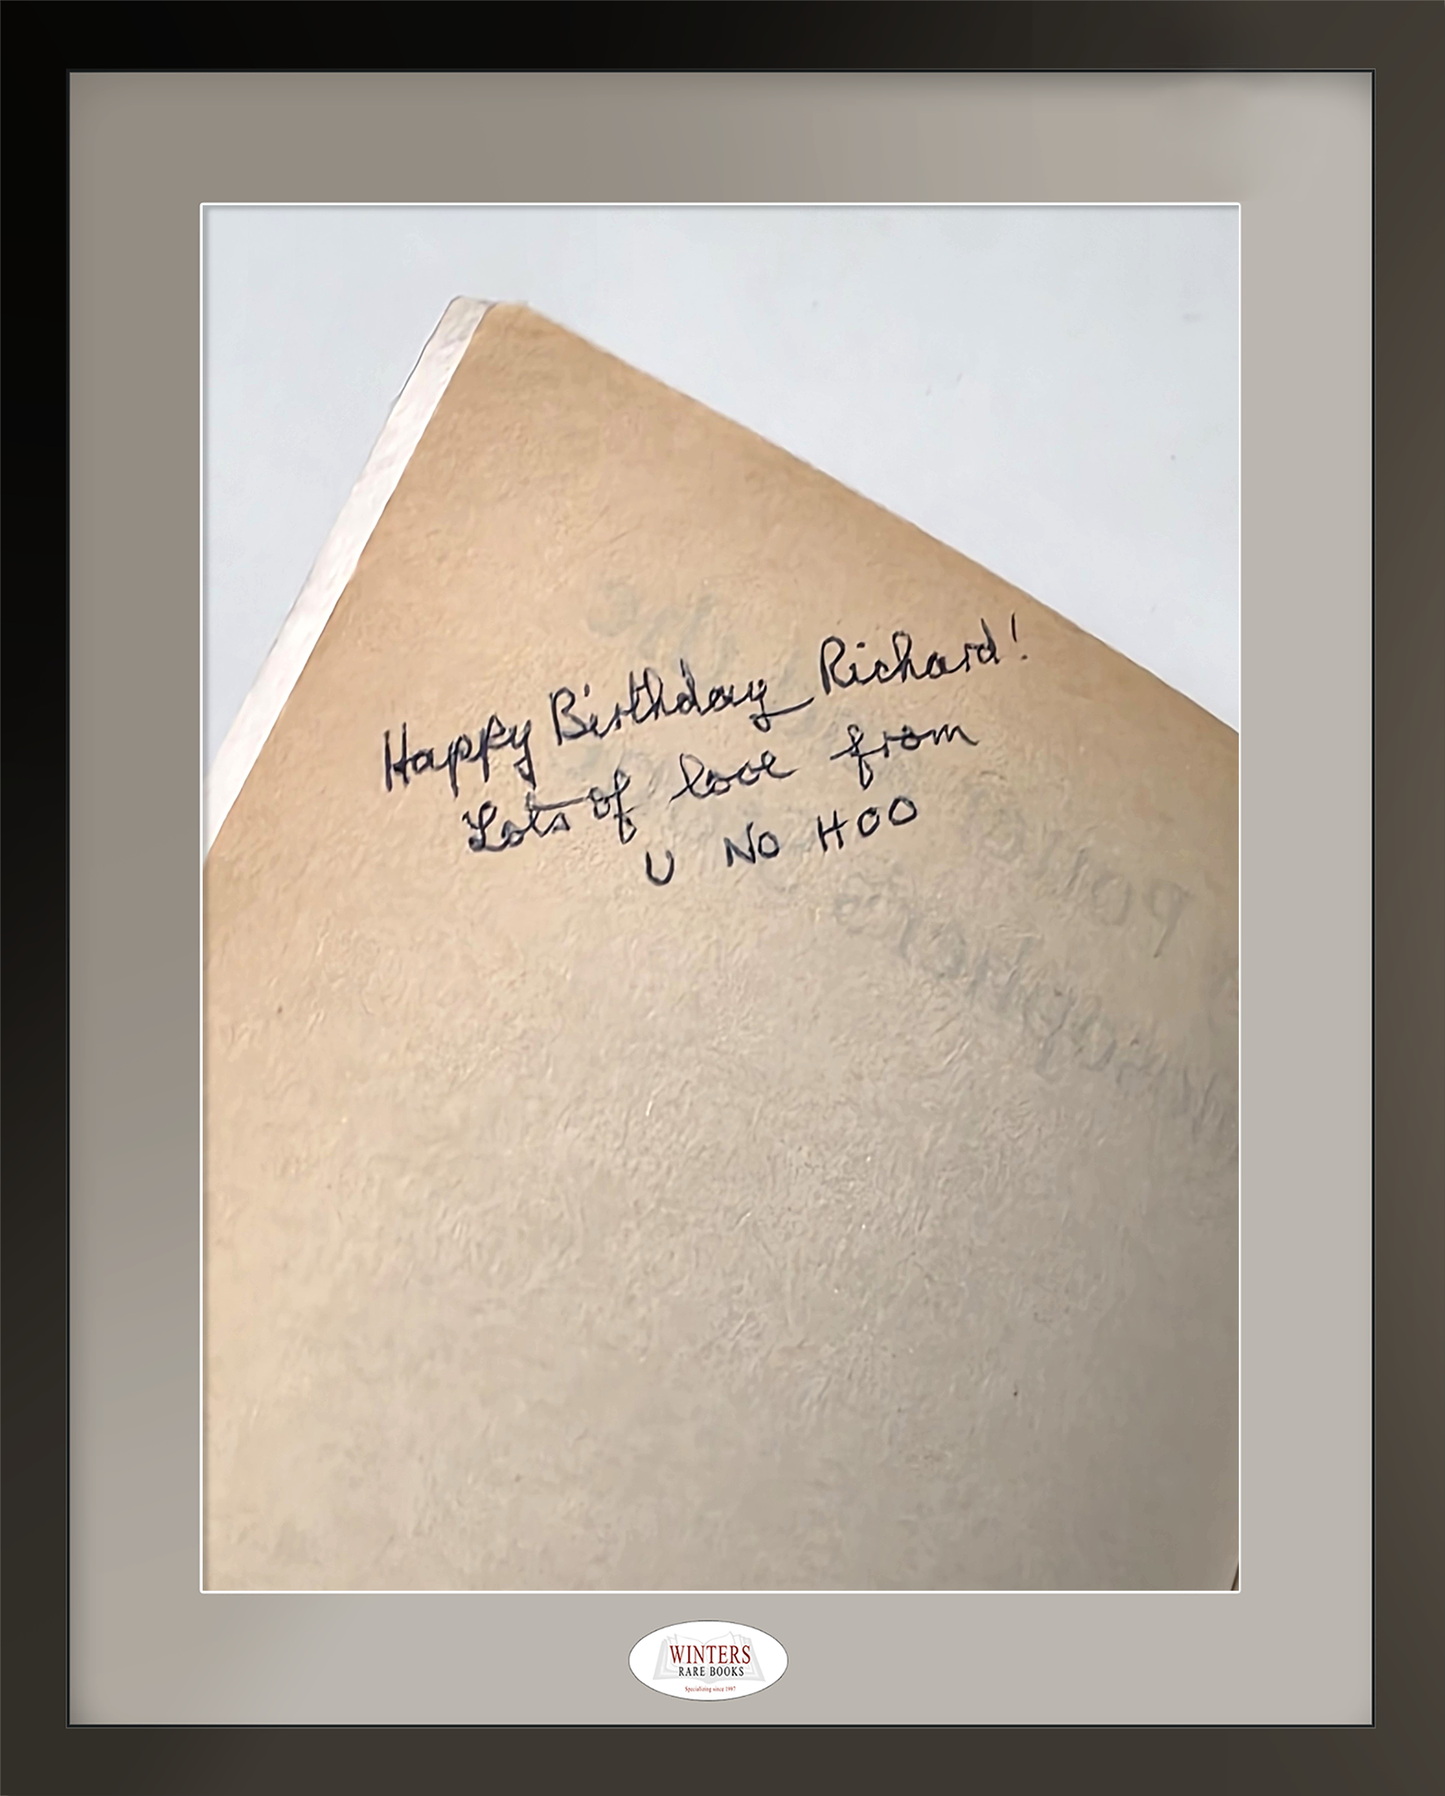 Happy Birthday Richard!
Lots of love from
U NO HOO
WINTERS
RARE BOOKS
Specializing since 1987